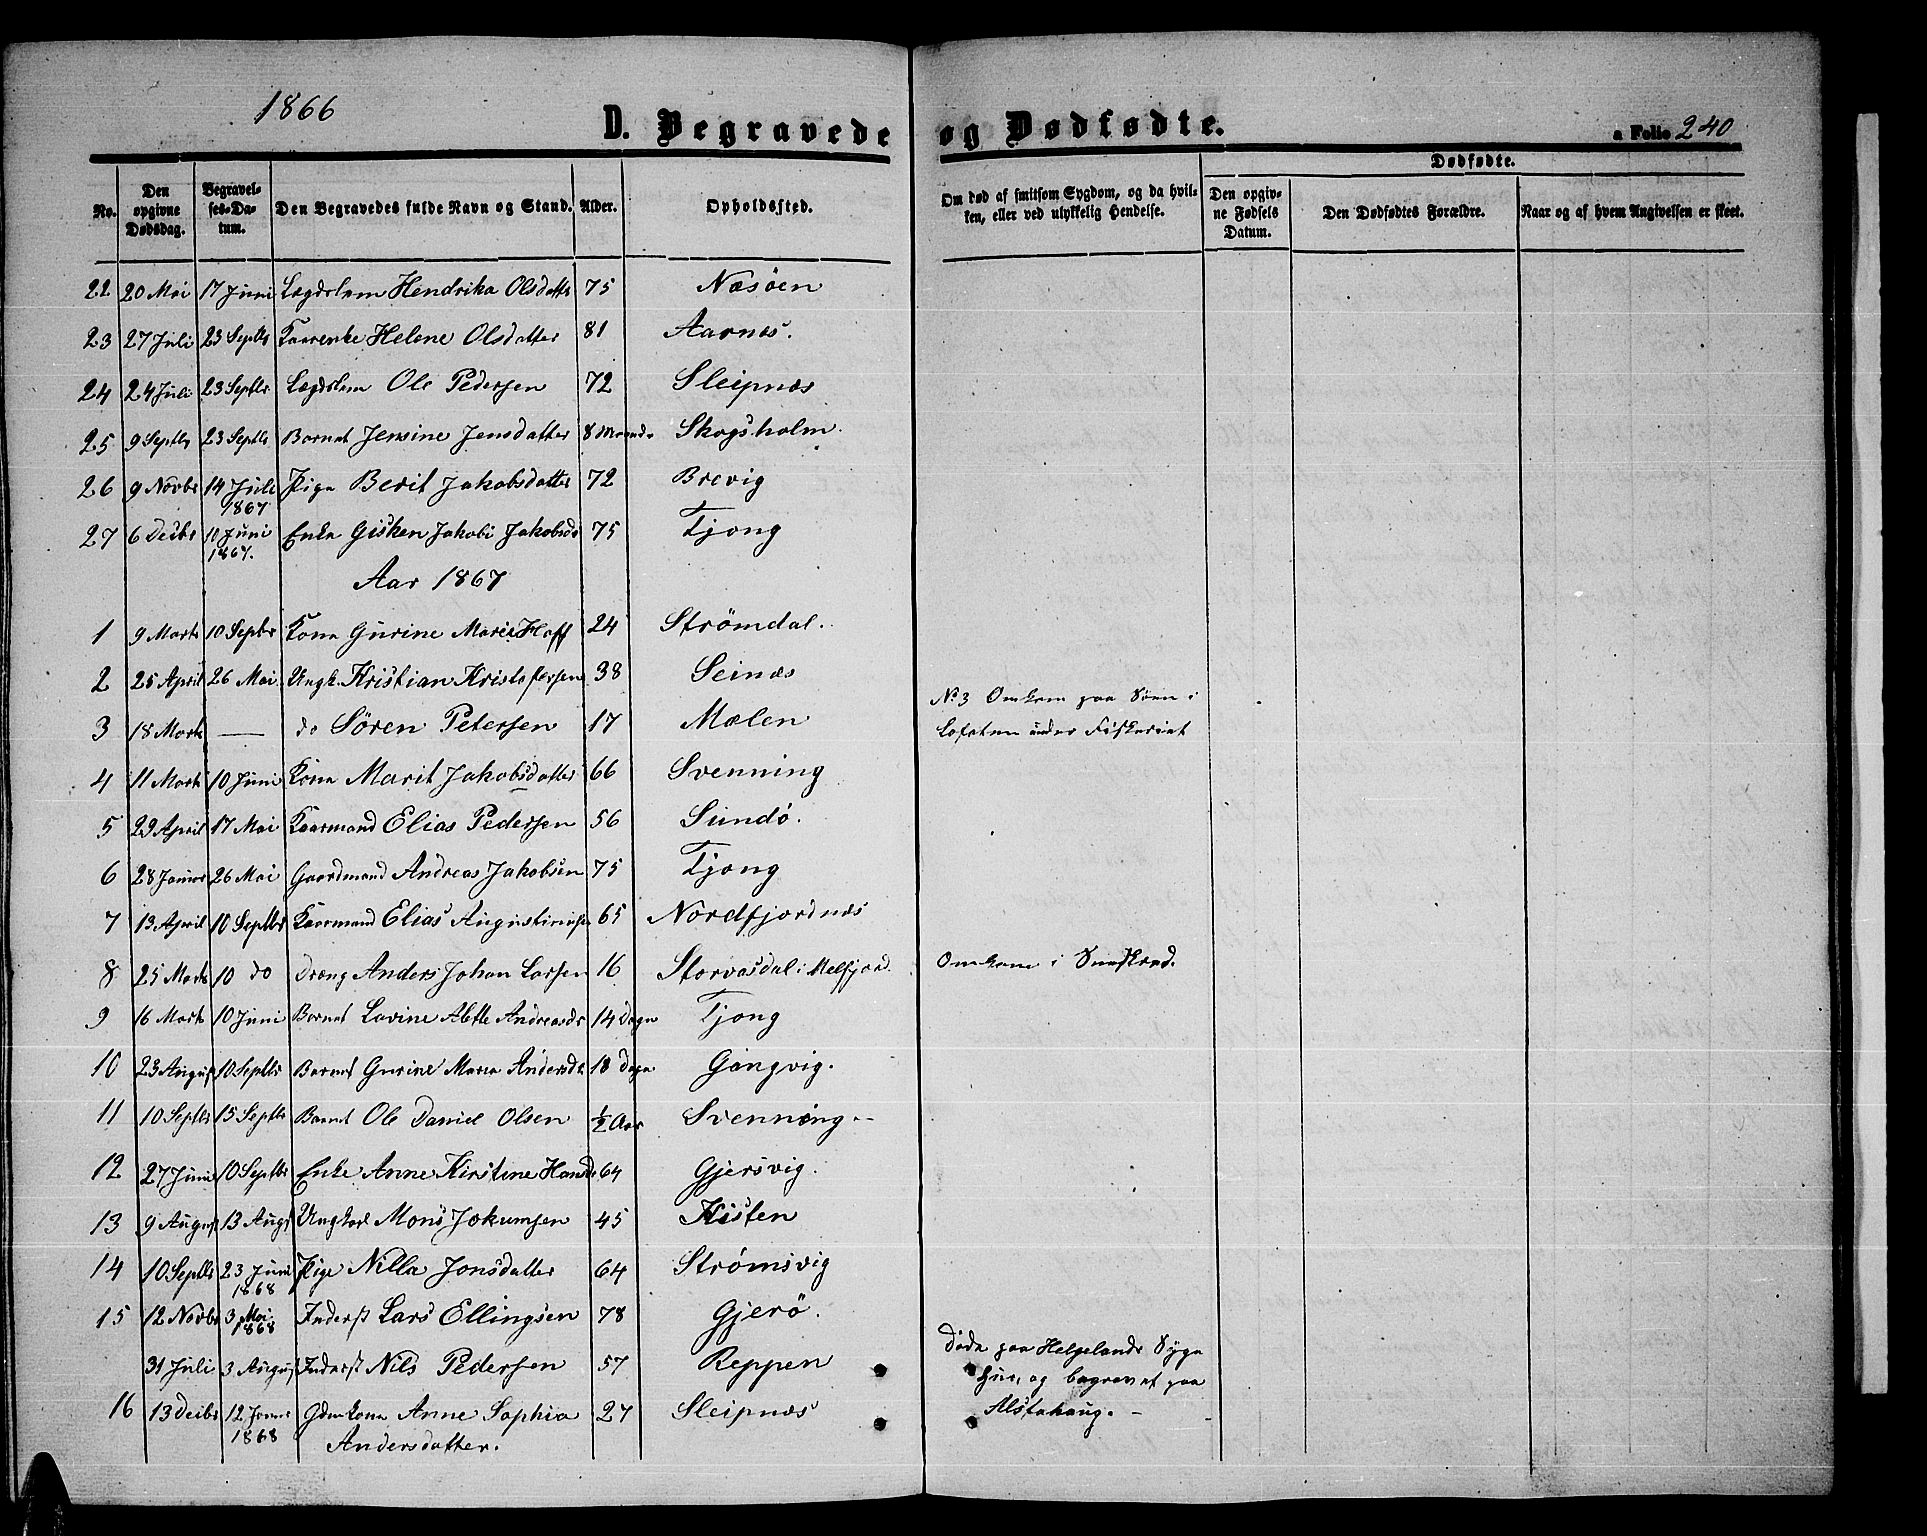 1866
D. Begravede og Dødfødte. a Folio 240
No. | Den opgivne Dødsdag. | Begravelses-Datum. | Den Begravedes fulde Navn og Stand. | Alder. | Opholdssted. | Om død af smitsom Sygdom, og da hvilken, eller ved ulykkelig Hendelse. | Dødfødte. | Den opgivne Fødsels Datum. | Den Dødfødtes Forældre. | Naar og af hvem Angivelsen er skeet.
22 20 Mai 17 Juni Lægdslem Hendrika Olsdatter 75 Næsöen
23 27 Juli 23 Septbr Helene Olsdatter 81 Aarnes.
24 24 Juli 23 Septbr Lægdslem Ole Pedersen 72 Sleipnæs
25 9 Septbr 23 Septbr Barnet Jensine Jensdatter 8 Maaned Skogsholm.
26 9 Novbr 14 Juli 1867 Pige Berit Jakobsdatter 72 Brevig
27 6 Decbr 10 Juni 1867. Enke Gisken Jakobi Jakobsd 75 Tjong
Aar 1867
1 9 Marts 10 Septbr Kone Gurine Marie Hoff 24 Strömdal.
2 25 April 26 Mai Ungk. Kristian Kristofersen 38 Seinæs
3 18 Marts — do Sören Petersen 17 Mælen No 3 Omkom paa Søen i
Lofoten under Fiskeriet
4 11 Marts 10 Juni Kone Marit Jakobsdatter 66 Svenning
5 29 April 17 Mai Kaarmand Elias Pedersen 56 Sundö.
6 28 Januar 26 Mai Gaardmand Andreas Jakobsen 75 Tjong
7 13 April 10 Septbr Kaarmand Elias Augustinusen 65 Nordfjordnæs
8 25 Marts 10 do Dreng Anders Johan Larsen 16 Storvasdal i Melfjord. Omkom i Sneskred.
9 16 Marts 10 Juni Barnet Lavine Andreasdr 14 Dage Tjong
10 23 August 10 Septbr Barnet Gurine Maria Andersdr 18 Dage Gangvig.
11 10 Septbr 15 Septbr Barnet Ole Daniel Olsen ½ Aar Svenning.
12 27 Juni 10 Septbr Enke Anne Kirstine Hansdr 64 Gjersvig.
13 9 August 13 Augst Ungkarl Mons Jokumsen 45 Kisten
14 10 Septbr 23 Juni 1868 Pige Nilla Jonsdatter 64 Strömsvig
15 12 Novbr 3 Mai 1868 Inderst Lars Ellingsen 78 Gjerö.
31 Juli 3 August Inderst Nils Pedersen 57 Reppen Døde paa Helgelands Syge
Huus, og begravet paa
Alstahaug. –
16 13 Decbr 12 Januar 1868 Gdmkone Anne Sophia 27 Sleipnæs
Andersdatter.